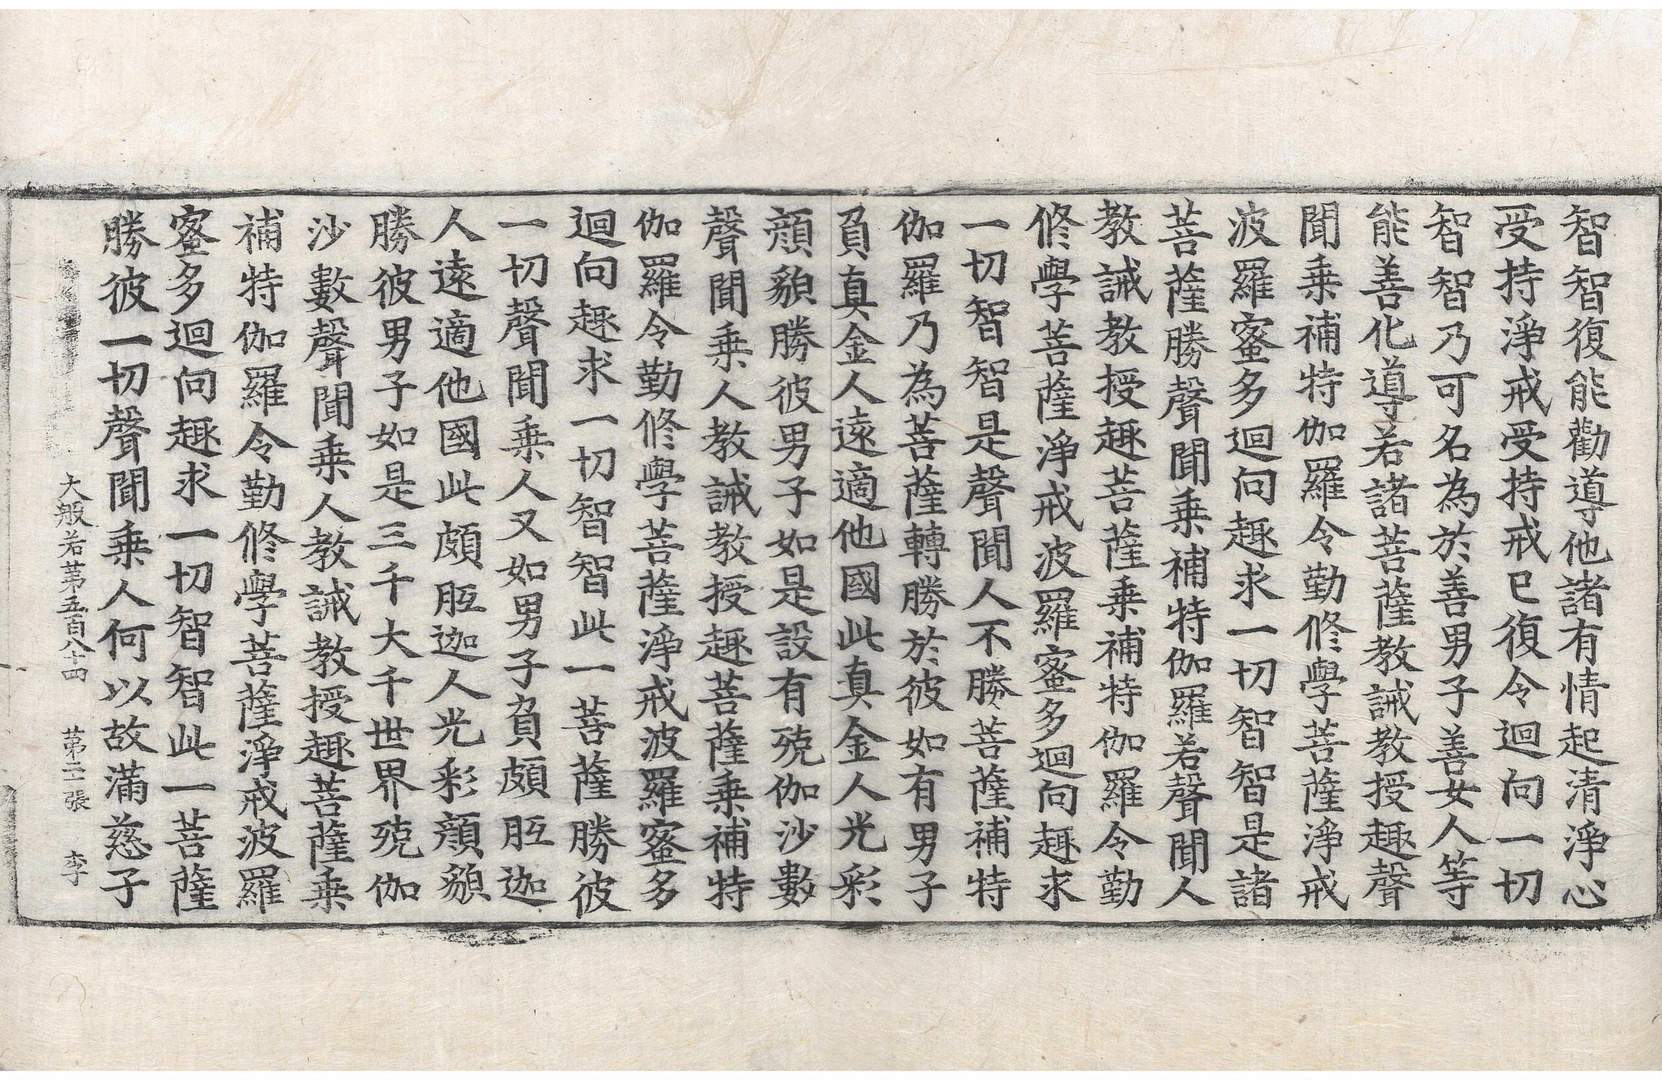 智智復能勸導他諸有情起清淨心
受持淨戒受持戒已復令迴向一切
智智乃可名為於善男子善女人等
能善化導若諸菩薩教誡教授趣聲
聞乗補特伽羅令勤修學菩薩淨戒
波羅蜜多迴向趣求一切智智是諸
菩薩勝聲聞乗補特伽羅若聲聞人
教誡教授趣菩薩乗補特伽羅令勤
修學菩薩淨戒波羅蜜多迴向趣求
一切智智是聲聞人不勝菩薩補特
伽羅乃為菩薩轉勝於彼如有男子
負真金人遠適他國此真金人光彩
顔貌勝彼男子如是設有殑伽沙數
聲聞乗人教誡教授趣菩薩乗補特
伽羅令勤修學菩薩淨戒波羅蜜多
迴向趣求一切智智此一菩薩勝彼
一切聲聞乗人又如男子負頗胝迦
人遠適他國此頗胝迦人光彩顔貌
勝彼男子如是三千大千世界殑伽
沙數聲聞乗人教誡教授趣菩薩乗
補特伽羅令勤修學菩薩淨戒波羅
蜜多迴向趣求一切智智此一菩薩
勝彼一切聲聞乗人何以故滿慈子
大般若第五百八十四 第二張 李